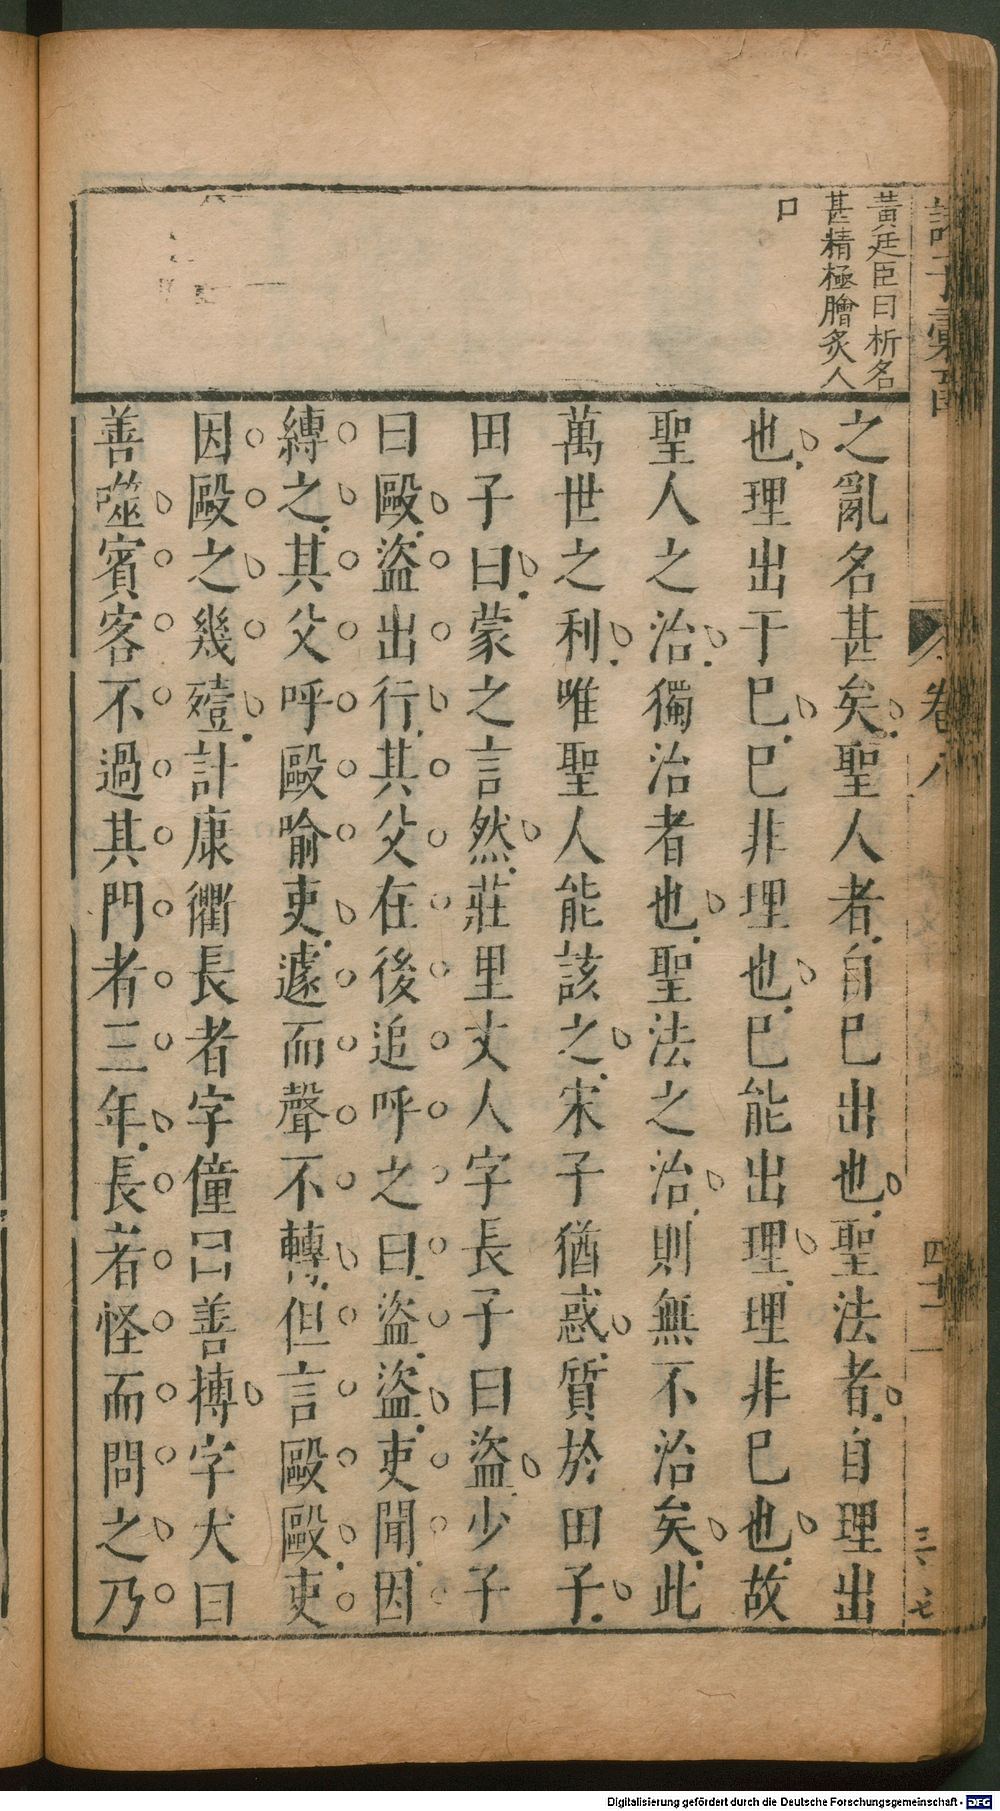 諸子彙函
卷八
四十一
三七
黃廷臣曰析名
甚精極膾炙人
口
之亂名甚矣聖人者自巳出也聖法者自理出
也理出于巳巳非理也巳能出理理非巳也故
聖人之治獨治者也聖法之治則無不治矣此
萬世之利唯聖人能該之宋子猶惑質於田子
田子曰蒙之言然莊里丈人字長子曰盜少子
曰毆盜出行其父在後追呼之曰盜盜吏聞因
縛之其父呼毆喻吏遽而聲不轉但言毆毆吏
因毆之幾殪計康衢長者字僮曰善搏字犬曰
善噬賓客不過其門者三年長者怪而問之乃
Digitalisierung gefördert durch die Deutsche Forschungsgemeinschaft - DFG